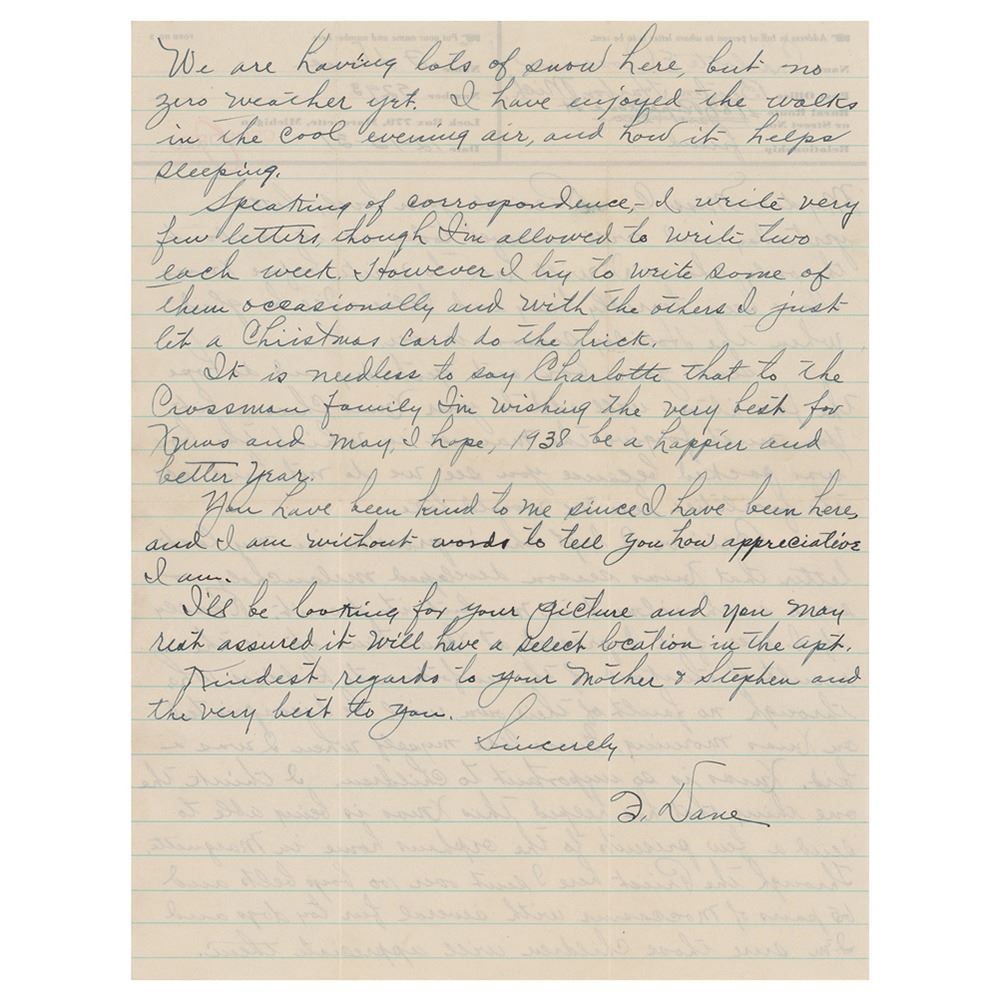 We are having lots of snow here, but no
zero weather yet. I have enjoyed the walks
in the cool evening air, and how it helps
sleeping.
Speaking of correspondence,- I write very
few letters, though I'm allowed to write two
each week. However I try to write some of
them occasionally and with the others I just
let a Christmas card do the trick.
It is needless to say Charlotte that to the
Crossman family I'm wishing the very best for
Xmas and may, I hope, 1938 be a happier and
better year.
You have been kind to me since I have been here,
and I am without words to tell you how appreciative
I am.
I'll be looking for your picture and you may
rest assured it will have a select location in the apt.
Kindest regards to your Mother & Stephen and
the very best to you.
Sincerely,
F. Dane